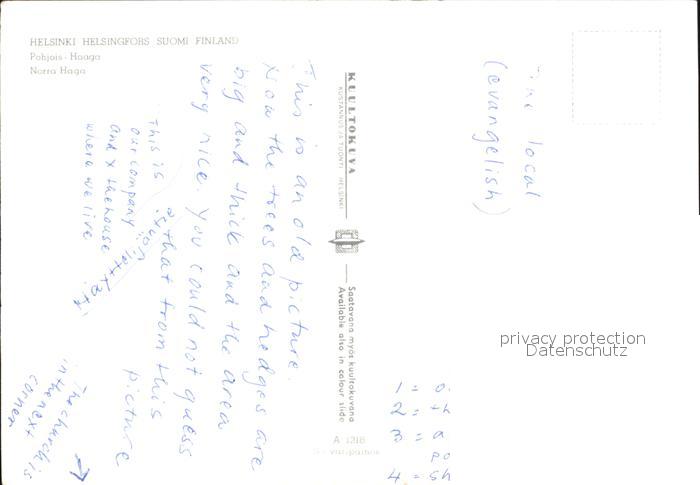 HELSINKI HELSINGFORS SUOMI FINLAND
Pohjois-Haaga
Norra Haga
This is an old picture.
Now the trees and hedges are
big and thick and the area
very nice. You could not guess
that from this
picture
This is
our company
and x the house
where we live
The church is
in the next
corner
KUULTOKUVA
KUSTANNUS JA TUONTI HELSINKI
Saatavana myös kuultokuvana
Available also in colour slide
A 1218
local
(evangelish)
1 =
2 = th
3 = a
po
4 = sh
privacy protection
Datenschutz